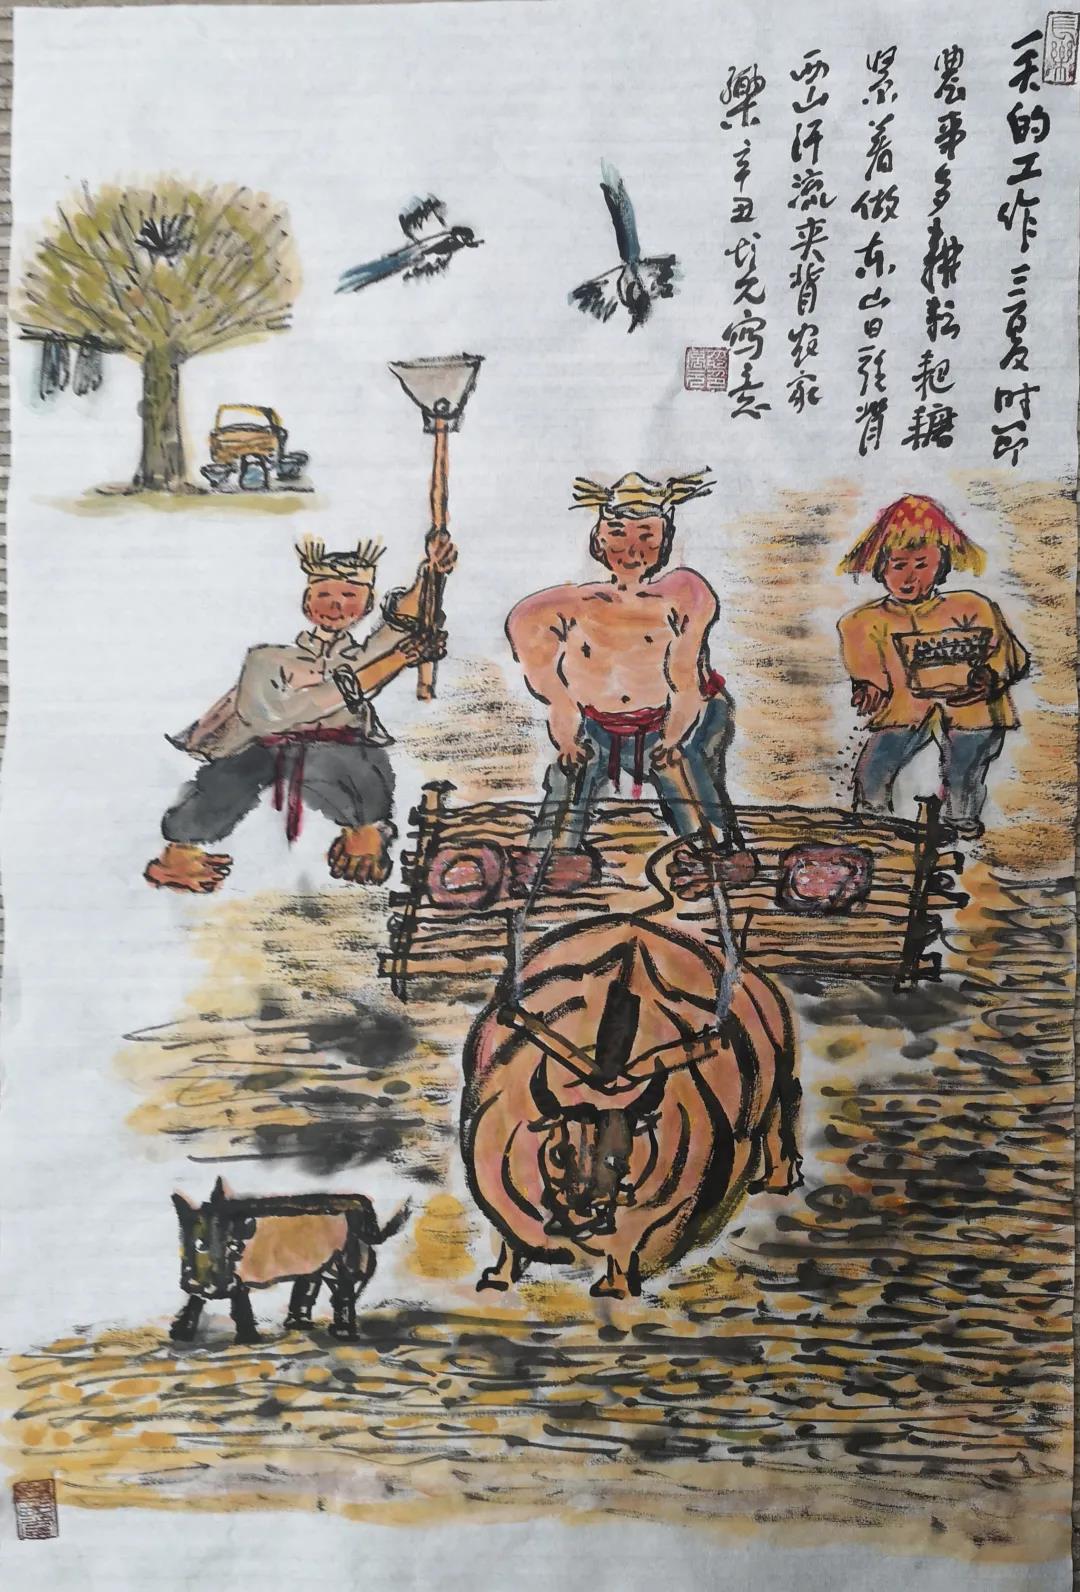 一天的工作三夏时节
農事多耕耘耙耱
紧着做东山日頭背
西山汗流夹背农家
樂辛丑 元寫意
長樂